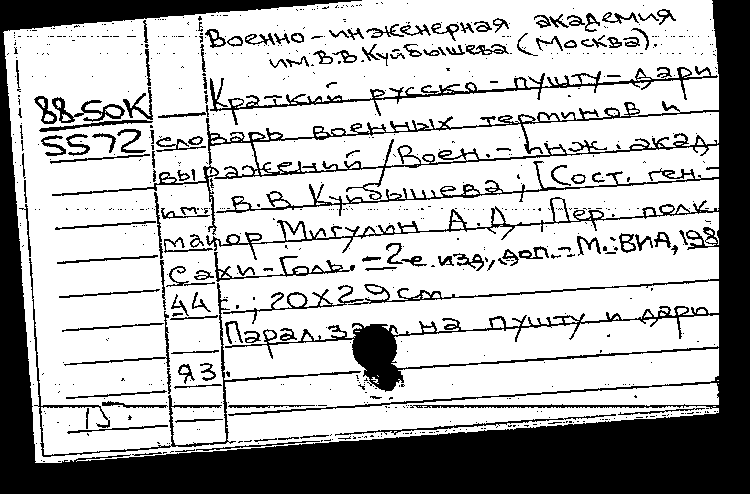 Военно-инженерная академия
им. В.В. Куйбышева (Москва).
88-50К
5572
Краткий русско-пушту-дари
словарь военных терминов и
выражений / Воен.-инж. акад.
им. В.В Куйбышева; [Сост. ген.-
майор Мигулин А.Д.; Пер. полк.
Сахи-Голь. -2-е изд, доп.-М.: ВИА, 198
44 с.; 20х29 см.
Парал. загл. на пушту и дари
ЯЗ.
15.